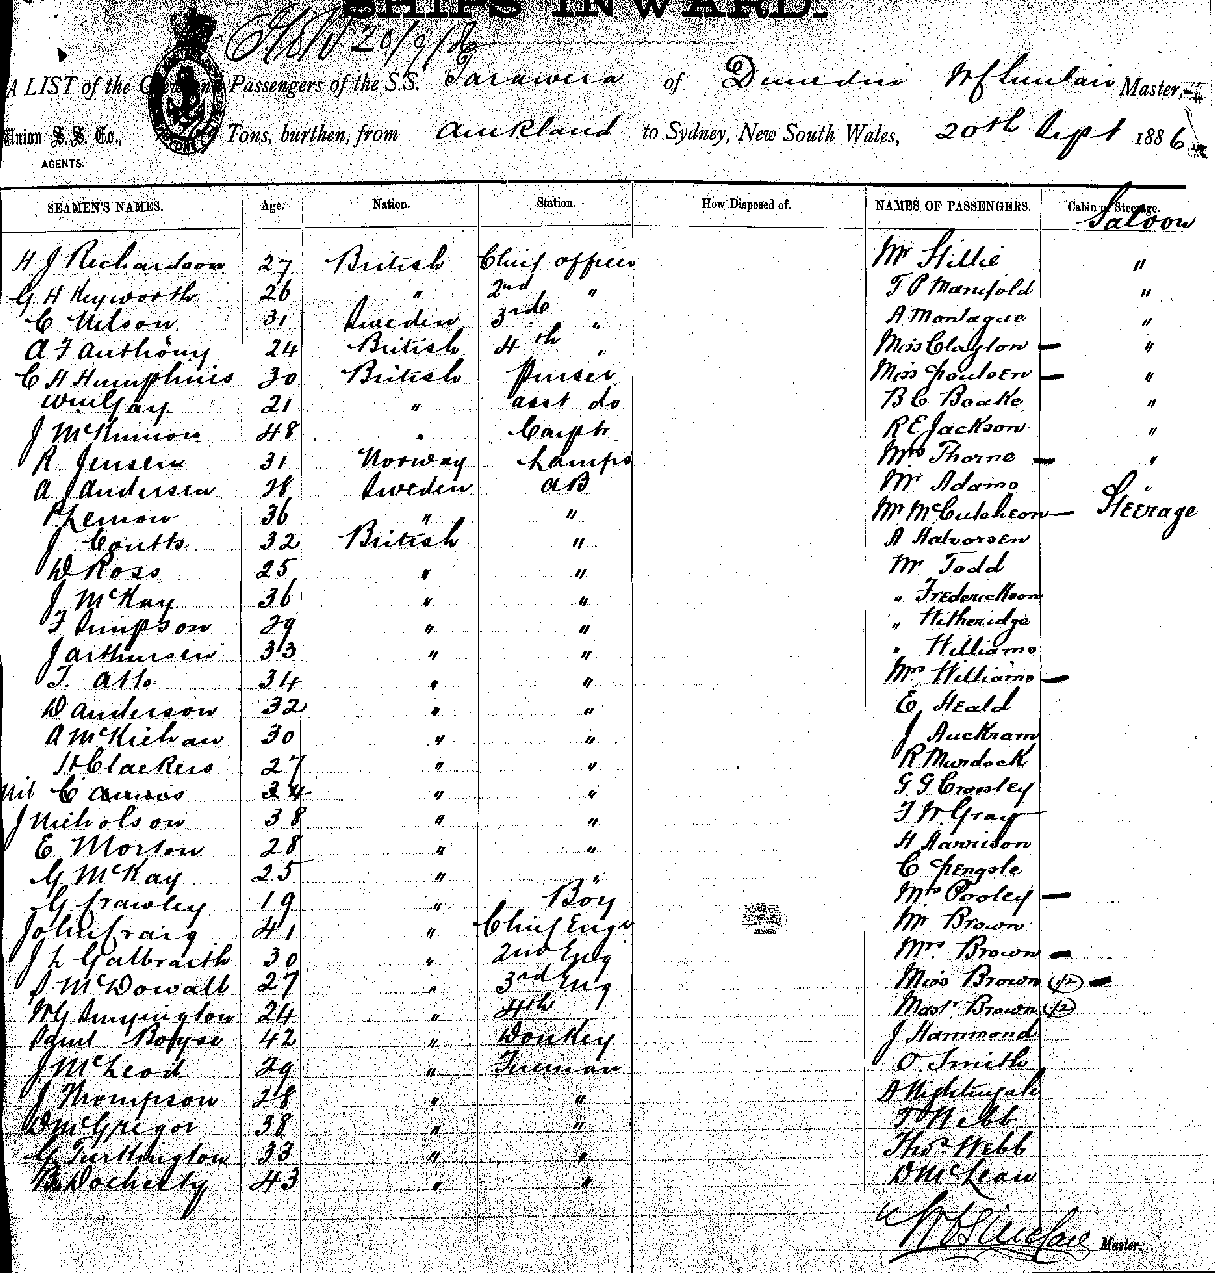 SHIPS INWARD.
A LIST of the Crew and Passengers of the S.S. Tarawera of Dunedin Master,
Union S.S. Co., Tons, burthen, from Auckland to Sydney, New South Wales, 20th Sept 1886
AGENTS.
SEAMEN'S NAMES. Age. Nation. Station. How Disposed of. NAMES OF PASSENGERS. Cabin or Steerage.
Saloon
H J Richardson 27 British Chief officer Mr Stillie "
G H Heyworth 26 " 2nd " T P Manifold "
C Nelson 31 Sweden 3rd " A Montague "
A F Anthony 24 British 4th " Miss Clayton — "
C H Humphries 30 British Purser Miss Poulsen — "
Wm Gay 21 " asst do B C Boake "
J McKinnon 48 " Carptr R E Jackson "
R Jensen 31 Norway Lamps Mrs Thorne — "
A J Andersen 28 Sweden AB Mr Adams "
Lemon 36 " " Mr McCutcheon — Steerage
J Coutts 32 British " A Halvorsen
D Ross 25 " " Mr Todd
J McKay 36 " " " Frederickson
T Simpson 29 " " " Hetheridge
J Arthursen 33 " " " Williams
T. 34 " " Mrs Williams —
D Anderson 32 " " E Heald
A McKichan 30 " " J Auckram
H Clackers 27 " " R Murdock
C 34 " " G G Crossley
J Nicholson 38 " " T W Gray
E Morton 28 " " H Harrison
G McKay 25 " " C
G Crawley 19 " Boy Mrs Pooley —
John Craig 41 " Chief Engr Mr Brown
J L Galbraith 30 " 2nd Eng Mrs Brown —
McDowall 27 " 3rd Eng Miss Brown (½) —
W G 24 " 4th Mastr Brown (½)
42 " Donkey J Hammond
J McLeod 29 " Fireman O Smith
J Thompson 28 " " A Nightingale
D McGregor 38 " " T Webb
G Turkington 33 " " Thos Webb
B Docherty 43 " " D McLean
Master.